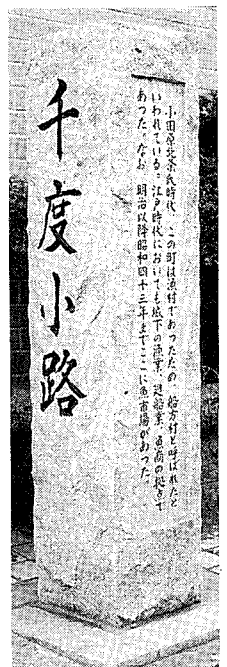 千度小路
小田原北条氏時代、この町は漁村であったため、船方村と呼ばれたと
いわれている。江戸時代においても城下の漁業、廻船業、魚商の拠点で
あった。なお、明治以降昭和四十三年までここに魚市場があった。